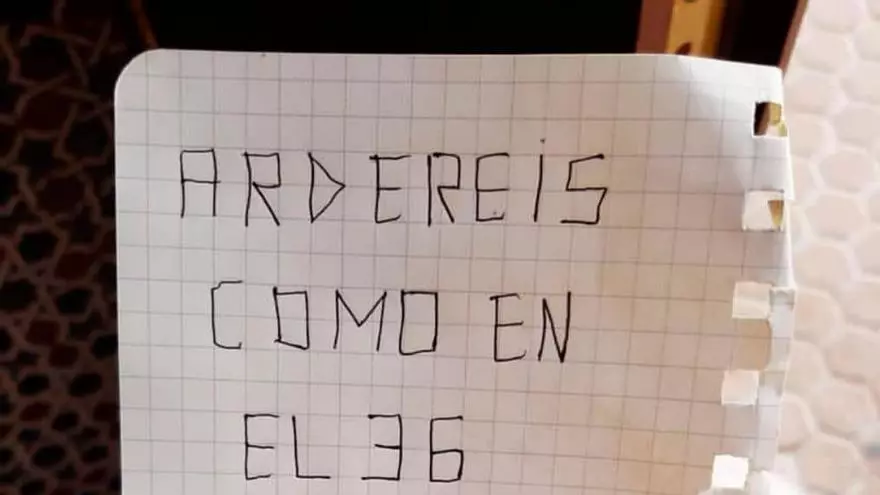 ARDEREİS
COMO EN
EL 36